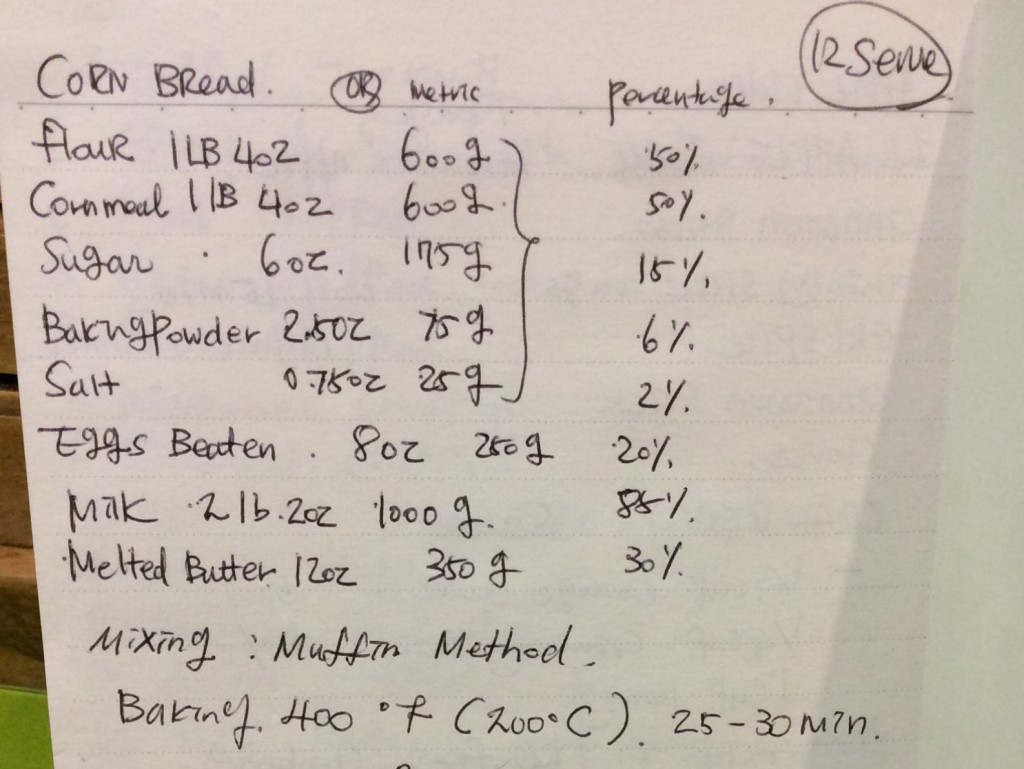 12 Serve
CORN BREad. OR metric percentage.
flour 1 LB 4oz 600g 50%
Cornmeal 1 lB 4oz 600g. 50%.
Sugar . 6oz. 175g 15%.
BakingPowder 2.5oz 75g 6%.
Salt 0.75oz 25g 2%.
Eggs Beaten . 8oz 250g 20%.
Milk 2 lb.2oz 1000g. 85%.
Melted Butter 12oz 350g 30%.
Mixing : Muffin Method.
Baking. 400°f (200°C). 25-30min.